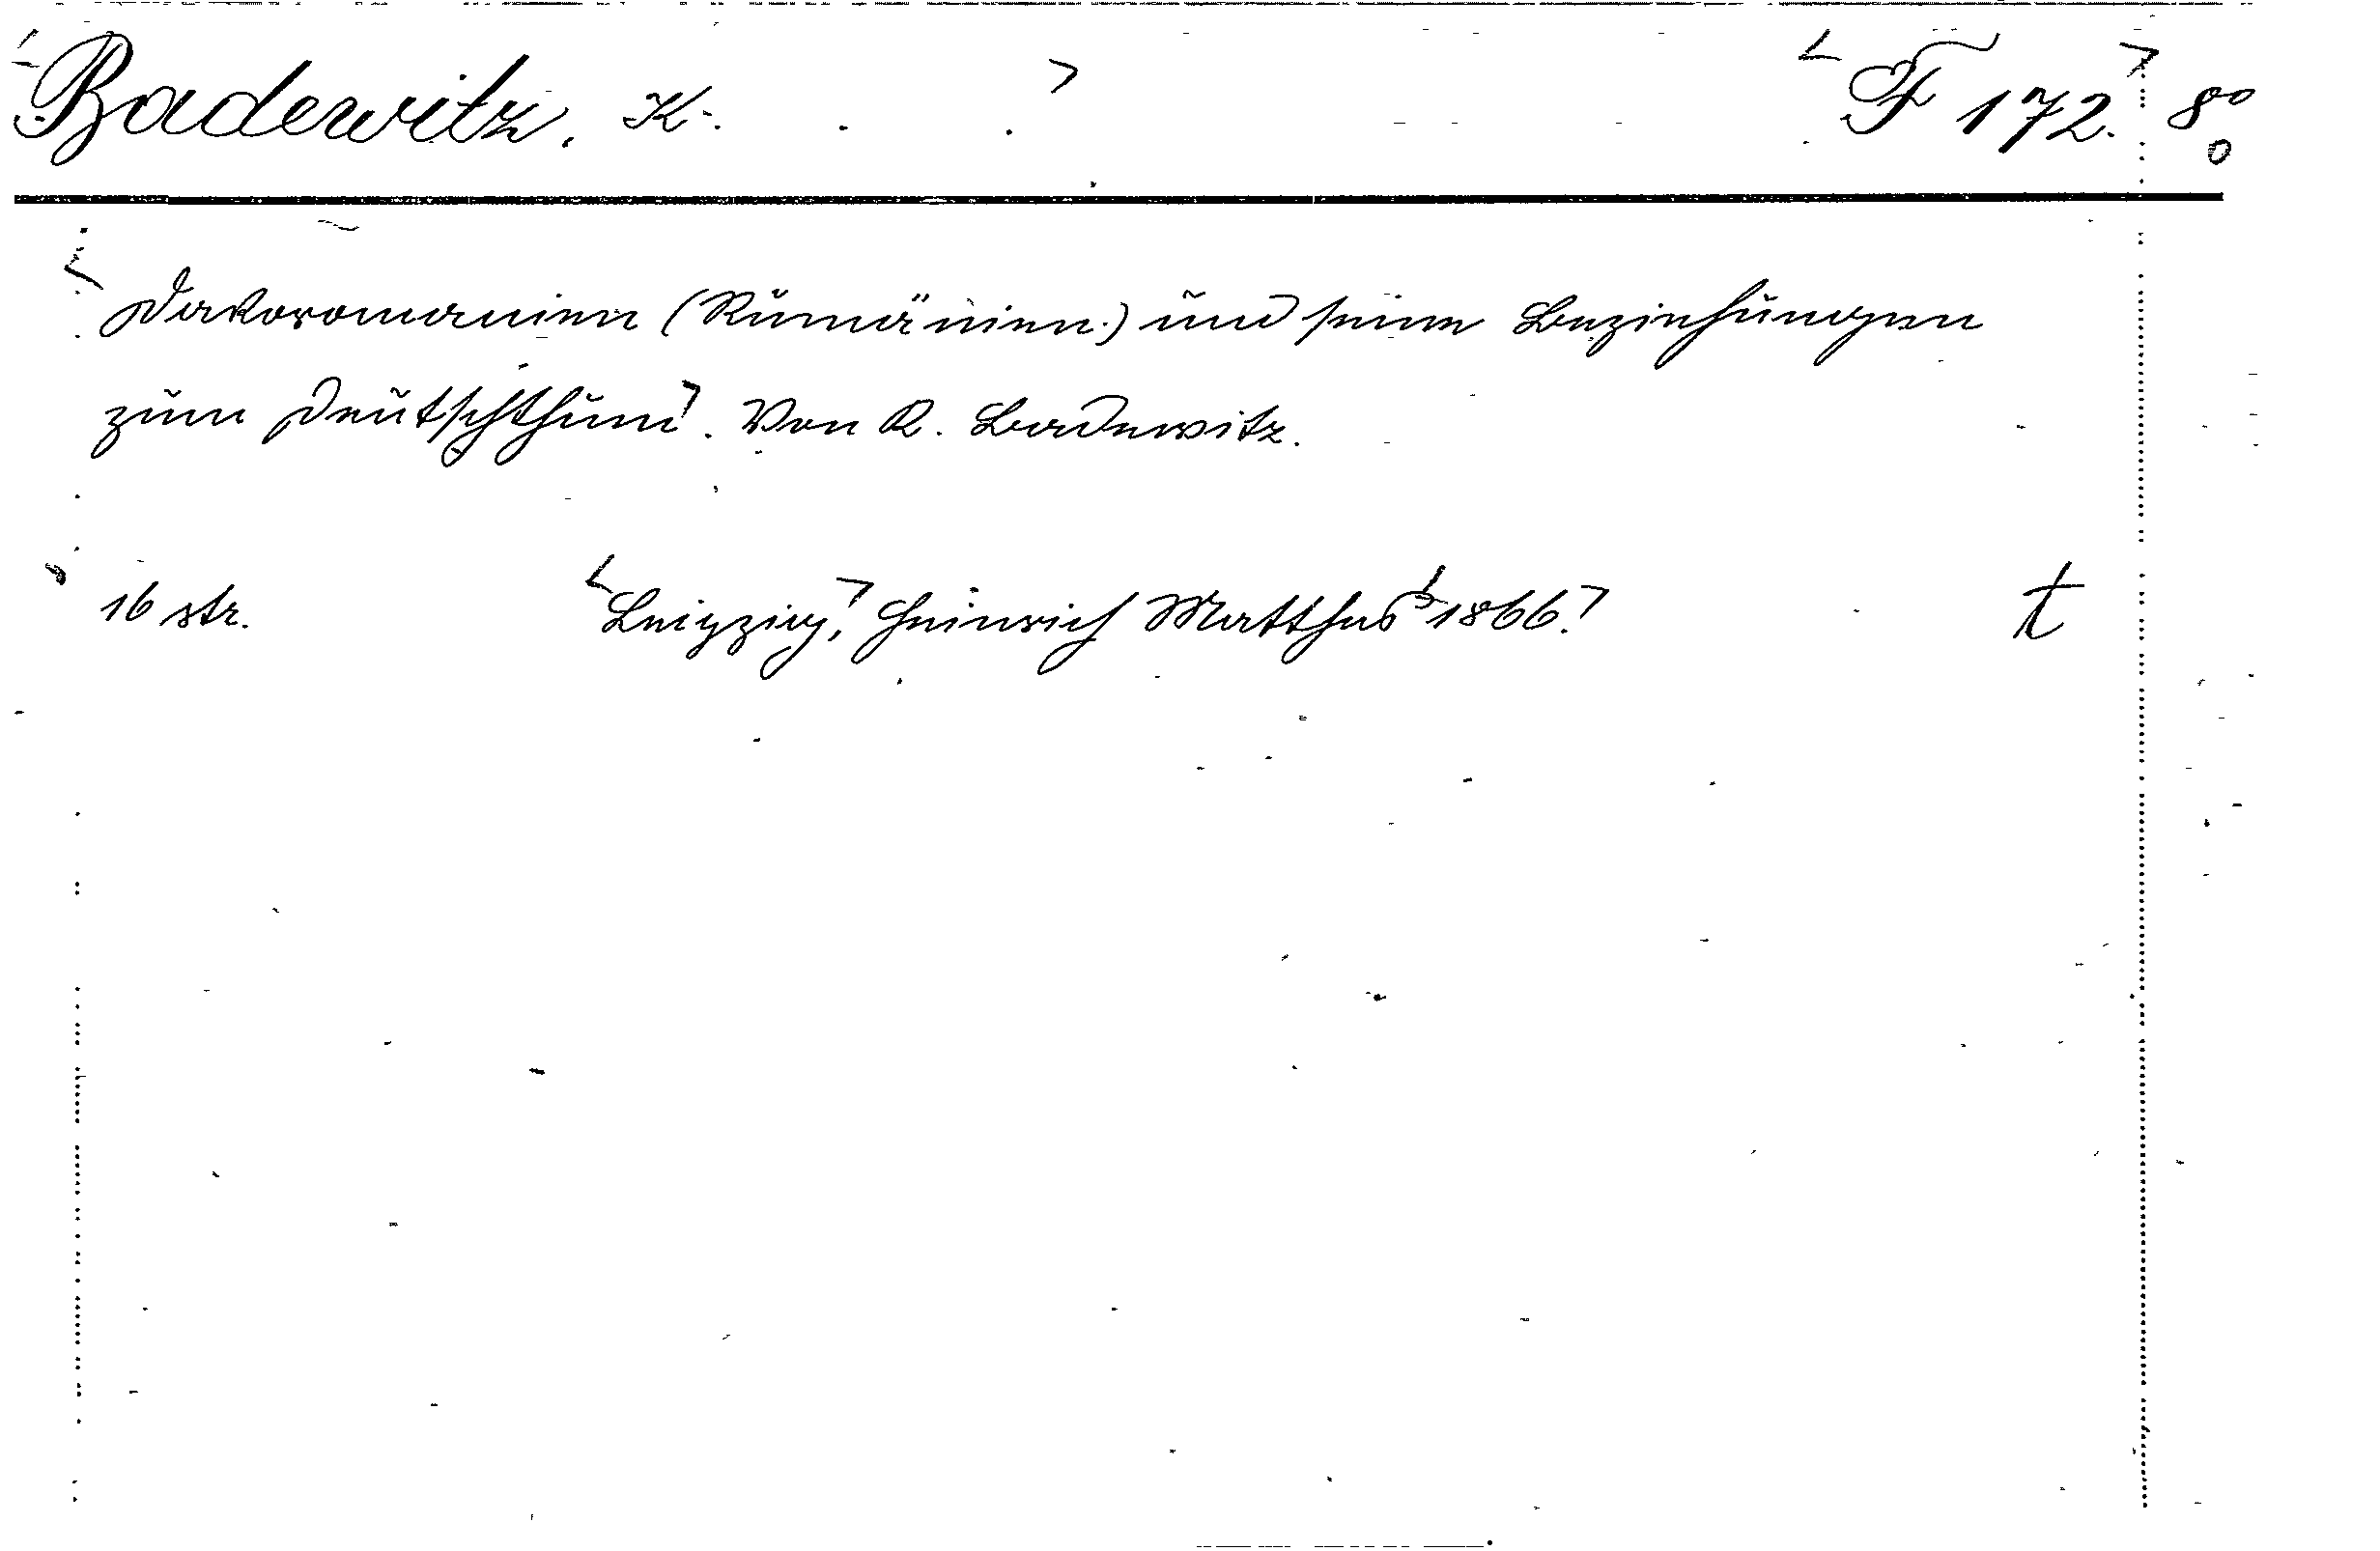 Badewitz, K. F 172. 8°
Dakoromanien (Rumänien.) und seine Beziehungen
zum Deutschthum. Von K. Badewitz.
16 str. Leipzig, Heinrich Matthes 1866.